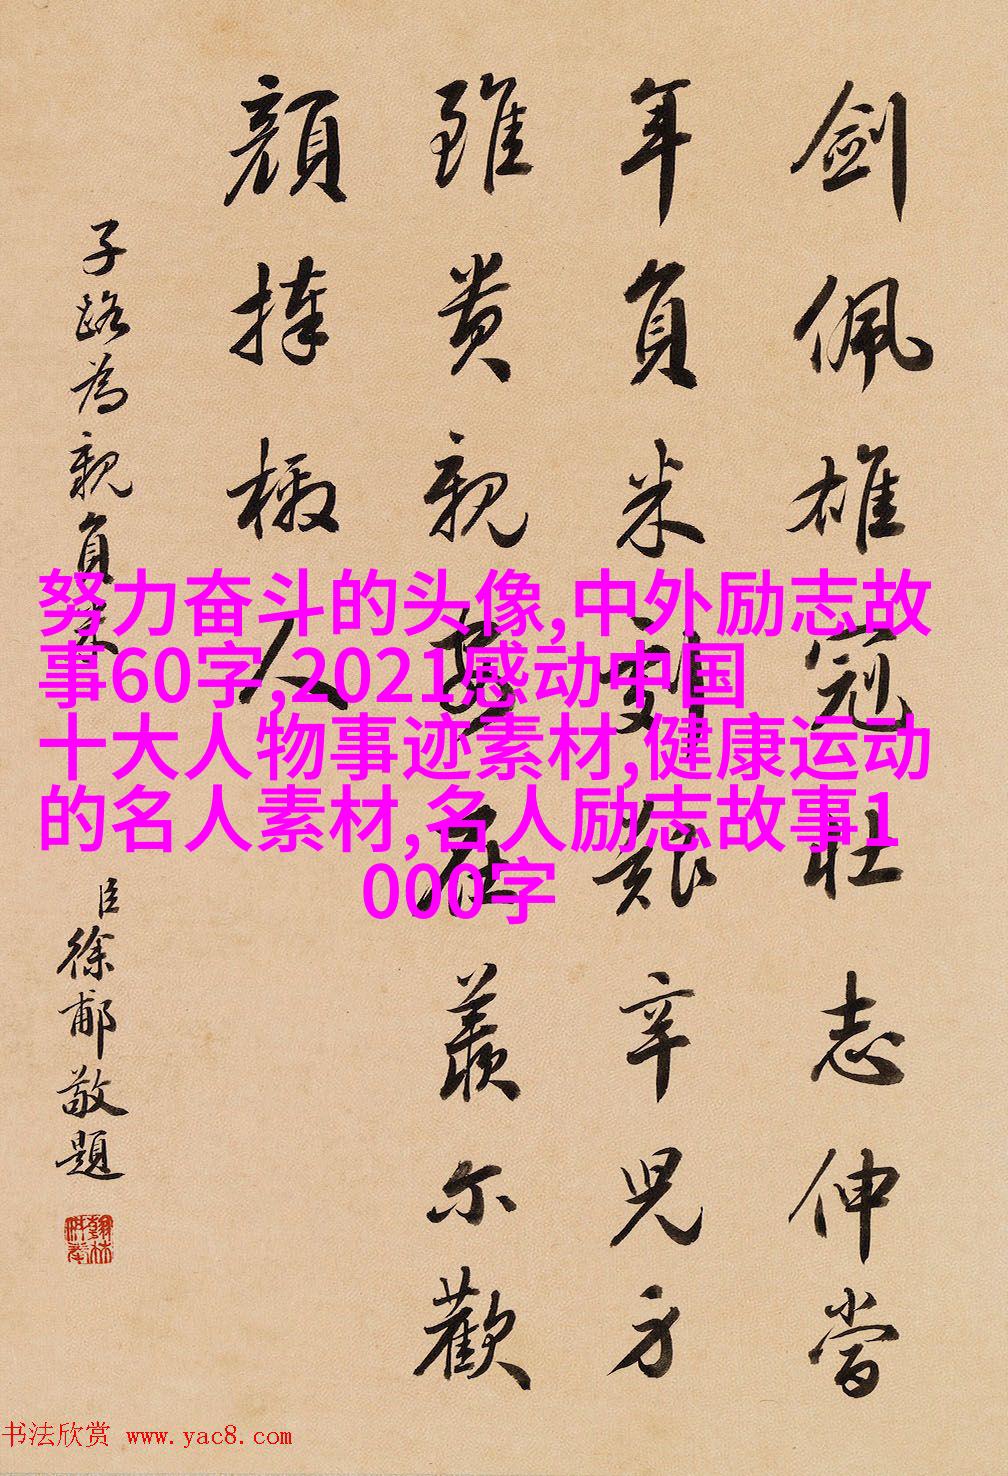 剑佩雄冠壮志伸当
年负米 艰辛儿身
虽贵亲 在羡尔欢
颜捧檄人
子路为亲负米
臣徐郙敬题
努力奋斗的头像,中外励志故
事60字,2021感动中国
十大人物事迹素材,健康运动
的名人素材,名人励志故事1
000字
书法欣赏 www.yac8.com